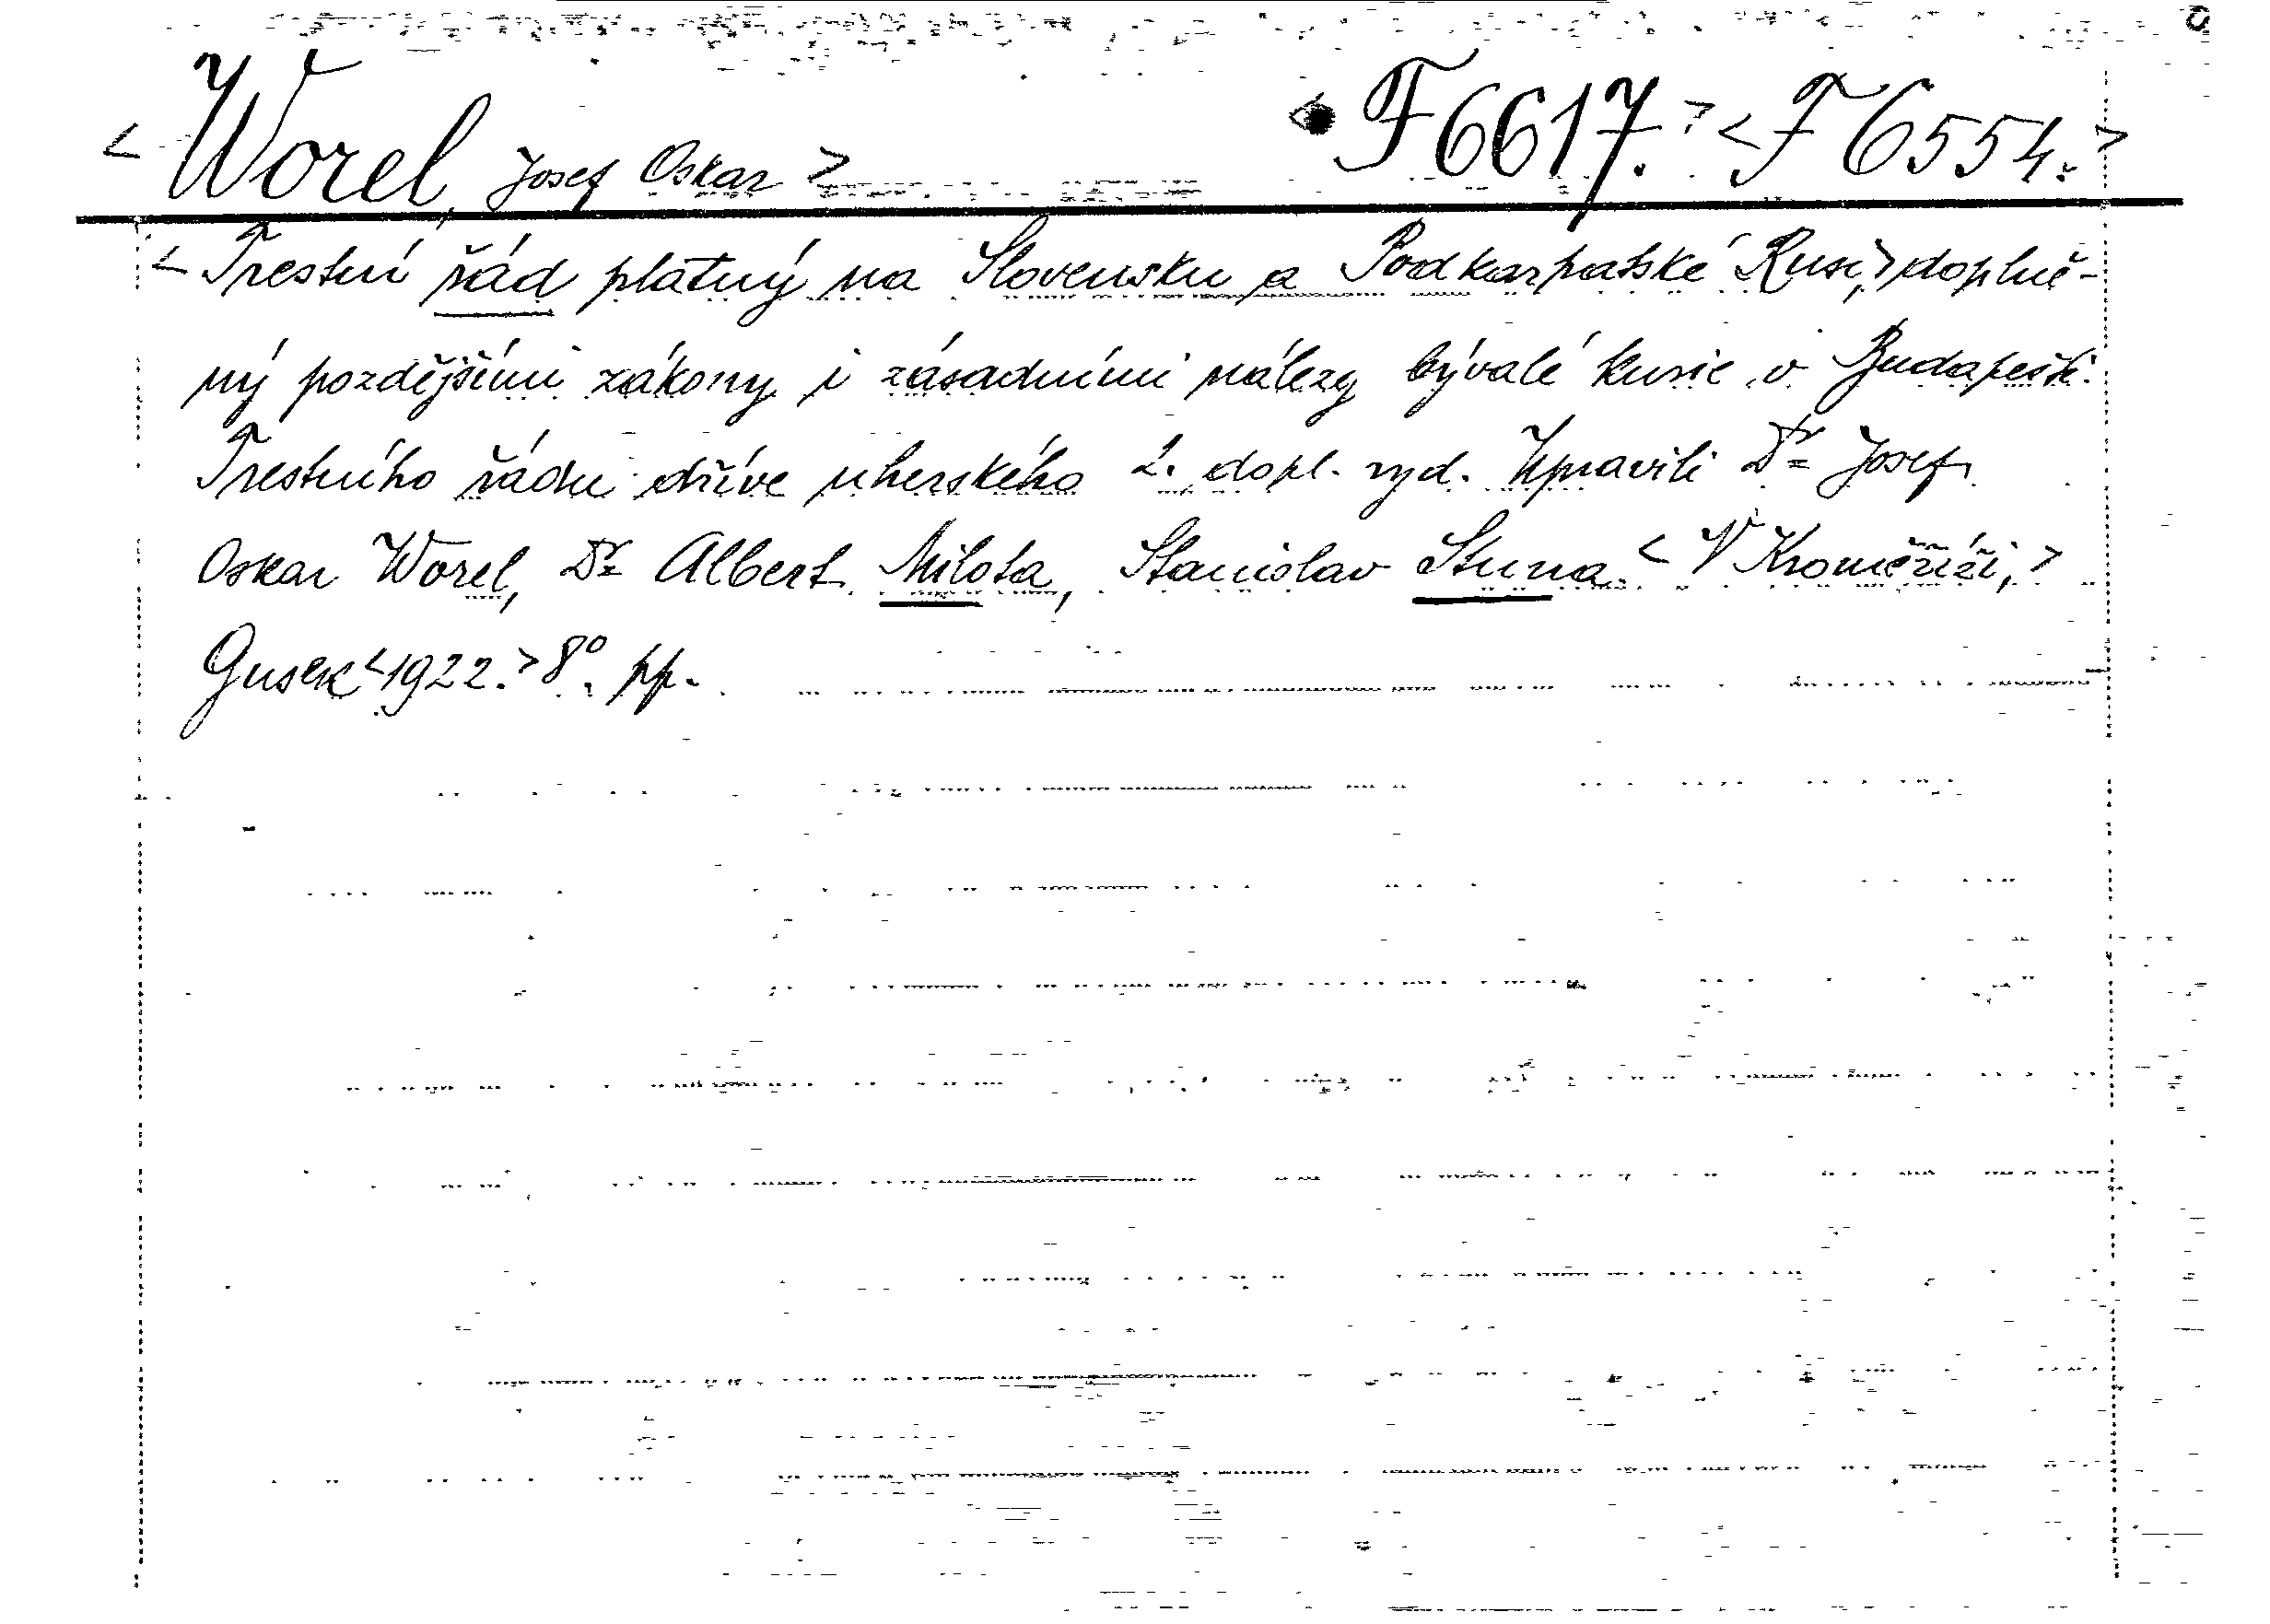 < Worel, Josef Oskar > < F 6617. > < F 6554. >
< Trestní řád platný na Slovensku a Podkarpatské Rusi, > doplně-
ný pozdějšími zákony i zásadními nálezy bývalé kurie v Budapešti.
Trestního řádu dříve uherského 2. dopl. vyd. Upravili Dr Josef
Oskar Worel, Dr Albert Milota, Stanislav Stuna. < V Kroměříži, >
Gusek < 1922. > 8°. pp.